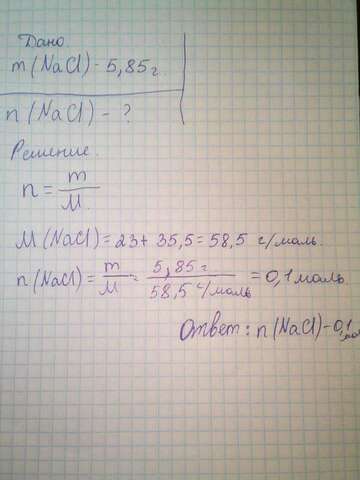 Дано
m (NaCl) - 5,85 г.
n (NaCl) - ?
Решение.
n = m / M.
M (NaCl) = 23 + 35,5 = 58,5 г/моль.
n (NaCl) = m / M = 5,85 г / 58,5 г/моль = 0,1 моль.
Ответ: n (NaCl) - 0,1 мол